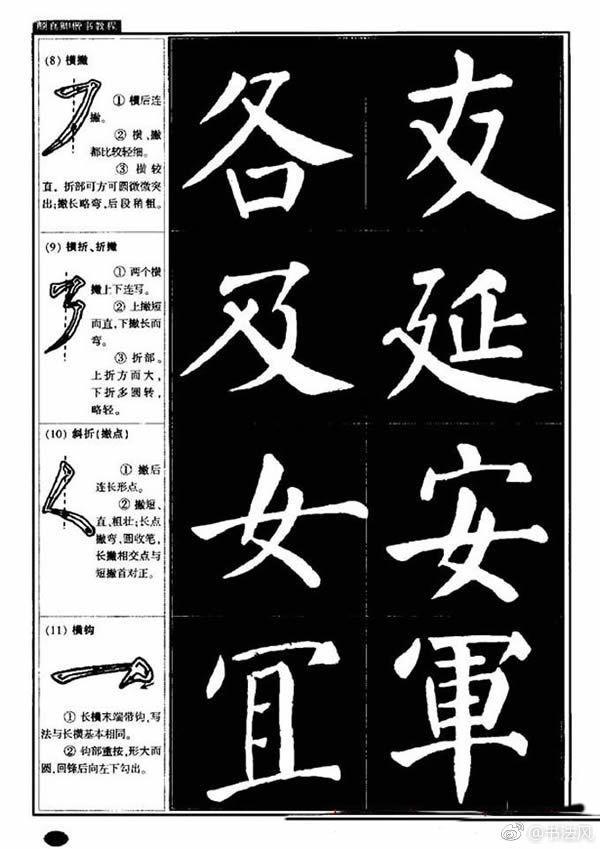 颜真卿楷书教程
(8) 横撇
① 横后连
撇。
② 横、撇
都比较轻细。
③ 横较
直，折部可方可圆微微突
出；撇长略弯，后段稍粗。
各 支
(9) 横折、折撇
① 两个横
撇上下连写。
② 上撇短
而直，下撇长而
弯。
③ 折部。
上折方而大，
下折多圆转，
略轻。
及 延
(10) 斜折(撇点)
① 撇后
连长形点。
② 撇短、
直、粗壮；长点
撇弯、圆收笔，
长撇相交点与
短撇首对正。
女 安
(11) 横钩
① 长横末端带钩，写
法与长横基本相同。
② 钩部重按，形大而
圆，回锋后向左下勾出。
冝 軍
@书法风